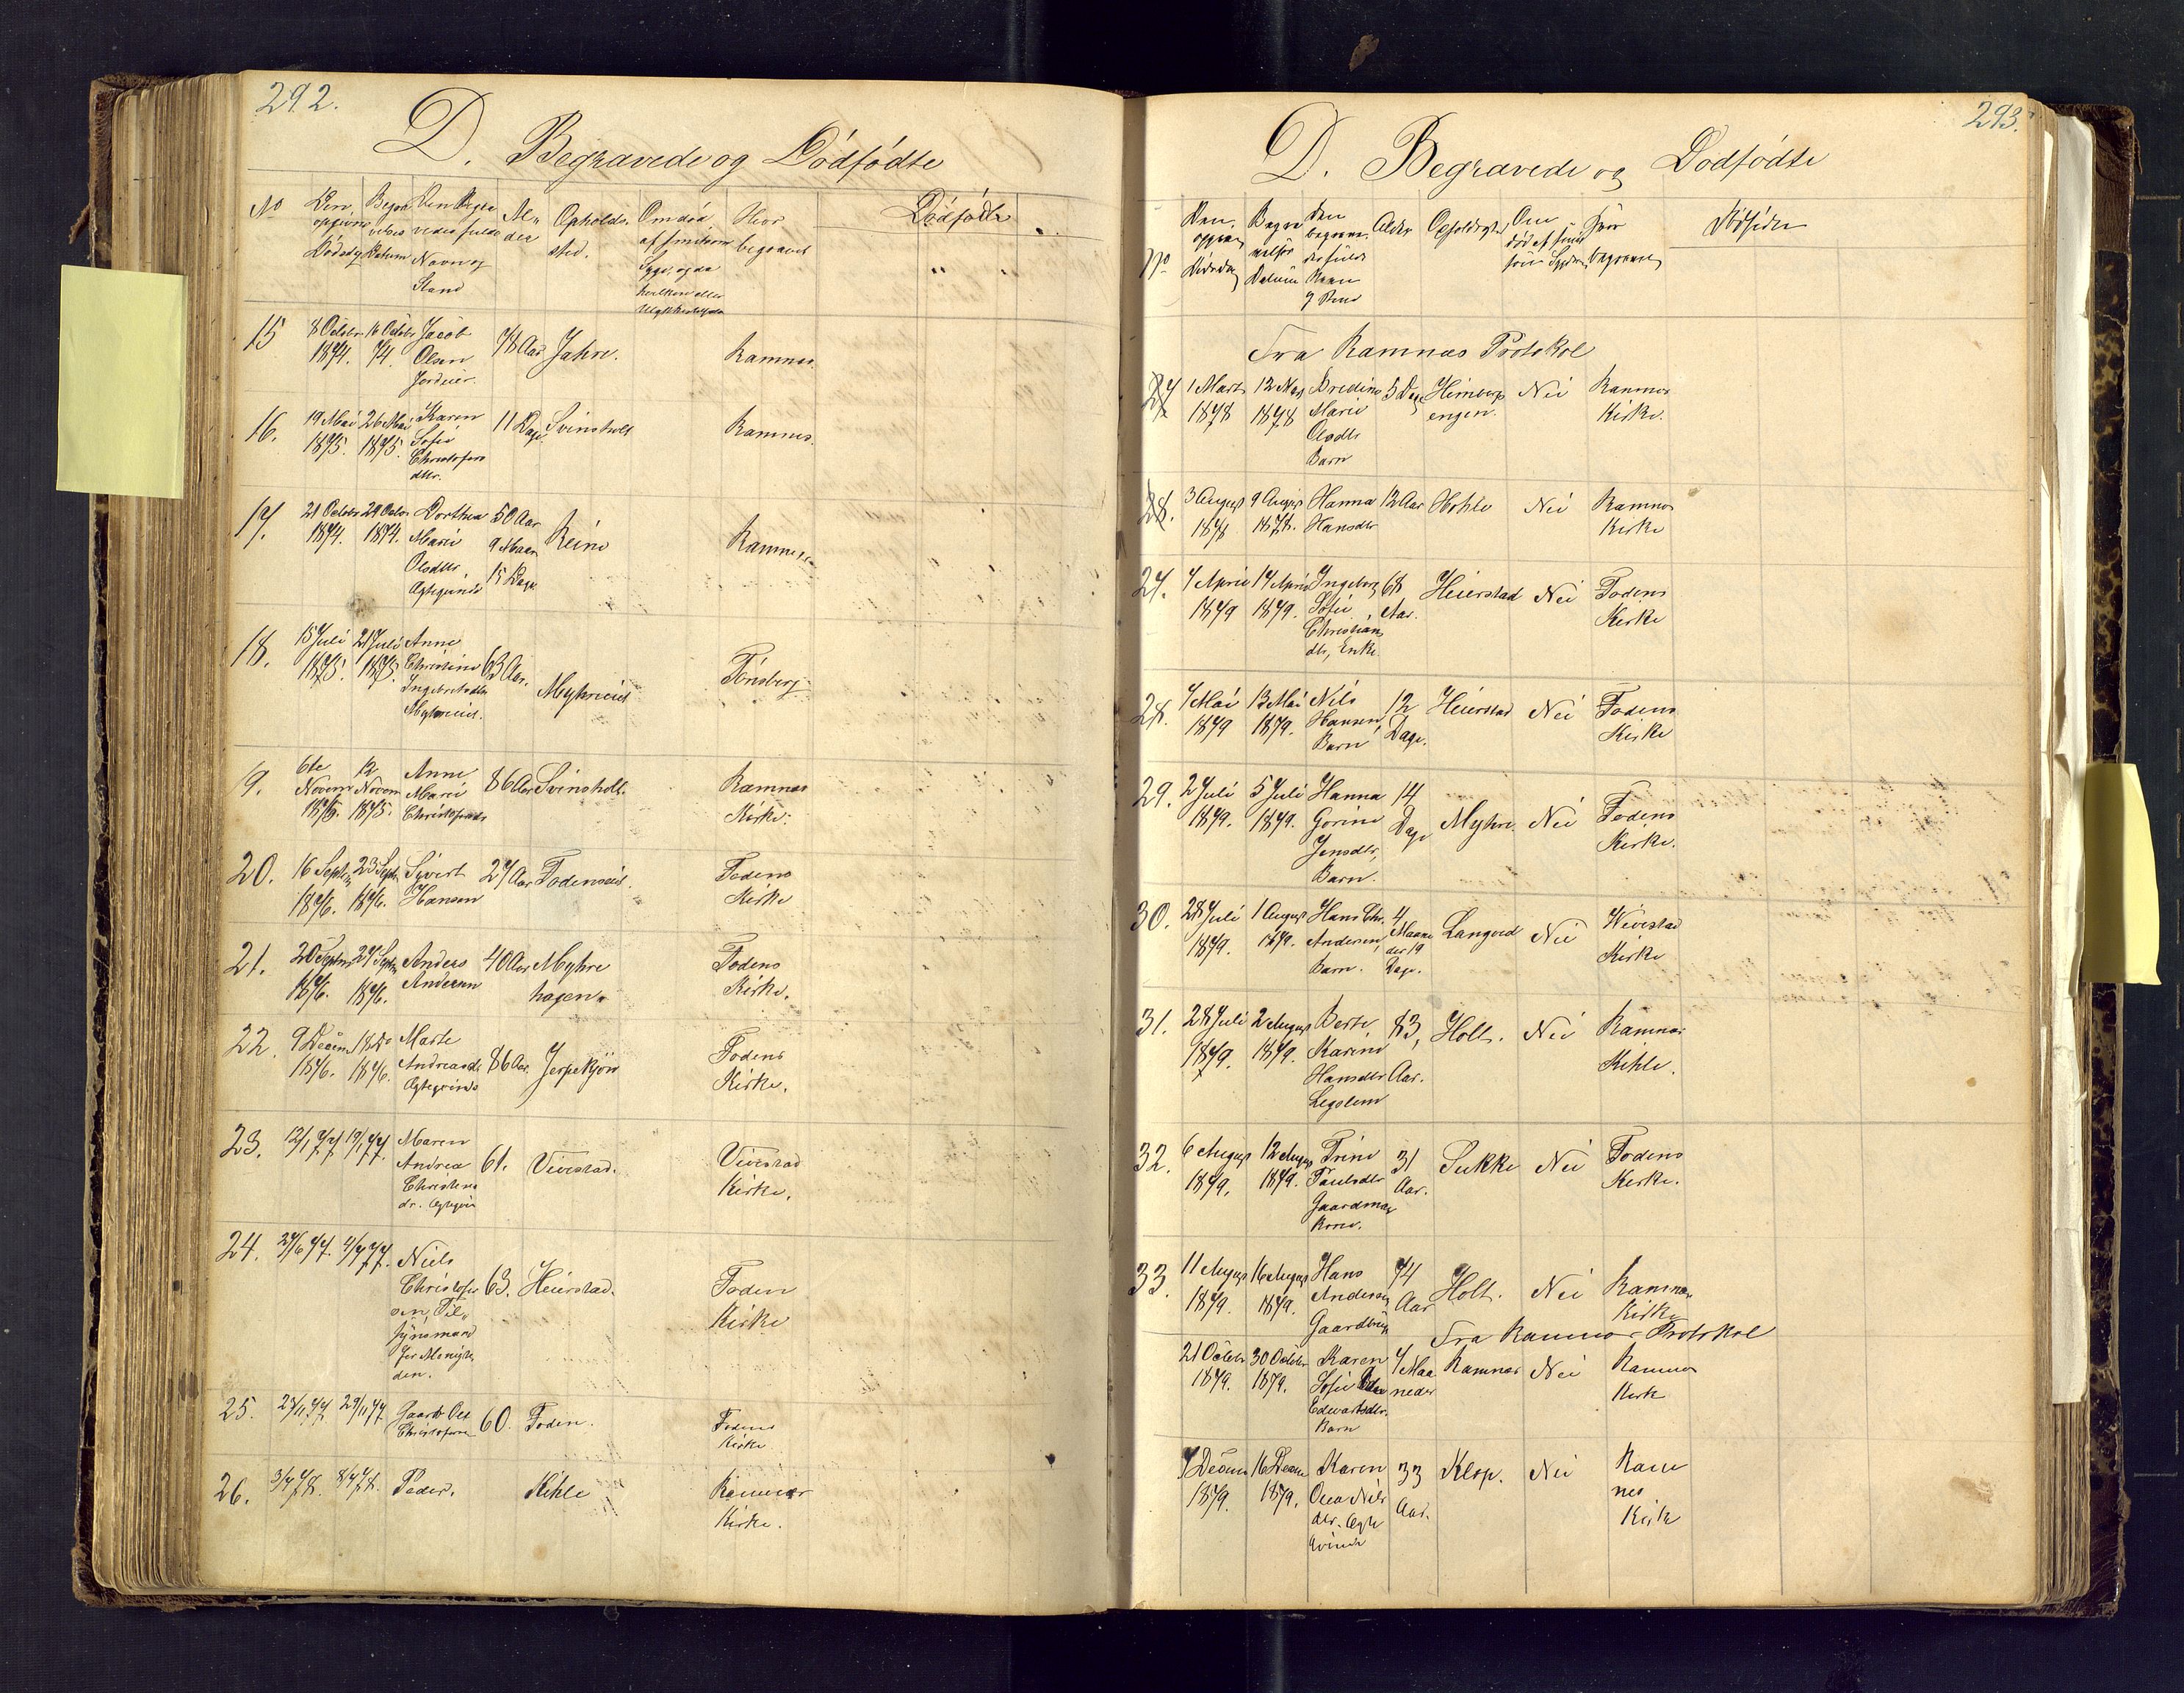 292.
D. Begravede og Dödfödte
No
Den opgivne Dödsdag
Begravelses Datum
Den Begravedes fulde Navn og Stand
Alder
Opholdssted.
Om död af smitsom Syge, og da
Hvor begravet
Dödfödte
15 8 Octobr 1874. 16 Octobr 74. Jacob Olsen Jordeier. 78 Aar Jahre. Ramnes.
16. 19 Mai 1875. 26 Mai 1875. Karen Sofie Christofers dtr. 11 Dage. Svinsholt Ramnes.
17. 21 Octobr 1874. 29 Octbr 1874. Dorthea Marie Olsdtr. 50 Aar 9 Maan 15 Dage. Reine Ramnes
18. 15 Juli 1875. 21 Juli 1875. Anne Christine Ingebretsdtr Myhreeiet. 63 Aar. Myhreeiet Tönsberg
19. 6te Novem 1875. 12 Novem 1875. Anne Marie Christofersdr 86 Aar Svinsholt. Ramnæs Kirke.
20. 16 Septbr 1876. 23 Septbr 1876. Syvert Hansen 27 Aar Fodenseiet. Fodens Kirke
21. 20 Septbr 1876. 27 Septbr 1876. Anders Andersen 40 Aar Myhre hagen. Fodens Kirke.
22. 9 Decem 1876. 18 Do 1876. Marte Andreasdr 86 Aar. Jerpekjön Fodens Kirke.
23. 12/1 77 19/1 77. Maren Andrea Christens dr. 61. Vivestad. Vivestad Kirke.
24. 27/6 77. 4/7 77. Niels Christofer sen, Til, synsmand for Menighe den. 63. Heierstad. Foden Kirke
25. 23/11 77. 29/11 77. Gaard Christofersen 60. Foden. Fodens Kirke
26. 3/7 78. 8/7 78. Peder. Kihle Ramnæs Kirke.
293.
D. Begravede og Dödfödte
No
Den opgivne Dödsdag
Begravelses Datum
Den begravedes fulde Navn og Stand
Alder
Opholdssted
Om död af smitsom Sygdom
Hvor begraven
Dödfödte
Fra Ramnæs Protokol
27 1 Marts 1878 12 Mars 1878 Bredine Marie Olsdtr Barn 5 Dage Himberg engen. Nei Ramnes Kirke.
28. 3 August 1878 9 August 1878. Hanna Hansdtr 12 Aar Hohle Nei Ramnes Kirke
27. 7 April 1879 14 April 1879. Ingeborg Sofie Christians dtr, Enke. 68 Aar. Heierstad Nei Fodens Kirke
28. 7 Mai 1879 13 Mai 1879. Nils Hansen, Barn 12 Dage. Heierstad Nei Fodens Kirke
29. 2 Juli 1879. 5 Juli 1879. Hanna Gorine Jensdtr, Barn. 14 Dage Myhre. Nei Fodens Kirke.
30. 28 Juli 1879. 1 August 1879. Hans Chr. Andersen, Barn. 4 Maane der 19 Dage. Langved Nei Vivestad Kirke
31. 28 Juli 1879. 2 August 1879. Berte Karine Hansdtr Legslem 83, Aar. Holt. Nei Ramnæs Kihle.
32. 6 August 1879. 12 August 1879. Trine Paulsdtr Gaardmands Kone. 31 Aar. Sukke Nei Fodens Kirke.
33. 11 August 1879. 16 August 1879. Hans Andersen Gaardbruger 74 Aar Holt. Nei Ramnæs Kirke
Fra Ramnæs Protokol
21 Octobr 1879. 30 Octobr 1879. Karen Sofie Edvartsdtr. Barn 7 Maa neder Ramnæs Nei Ramnes Kirk
7 Decem 1879. 16 Decem 1879. Karen Olea Nils dtr. Egte qvinde 33 Aar. Klop. Nei Ram nes Kirk